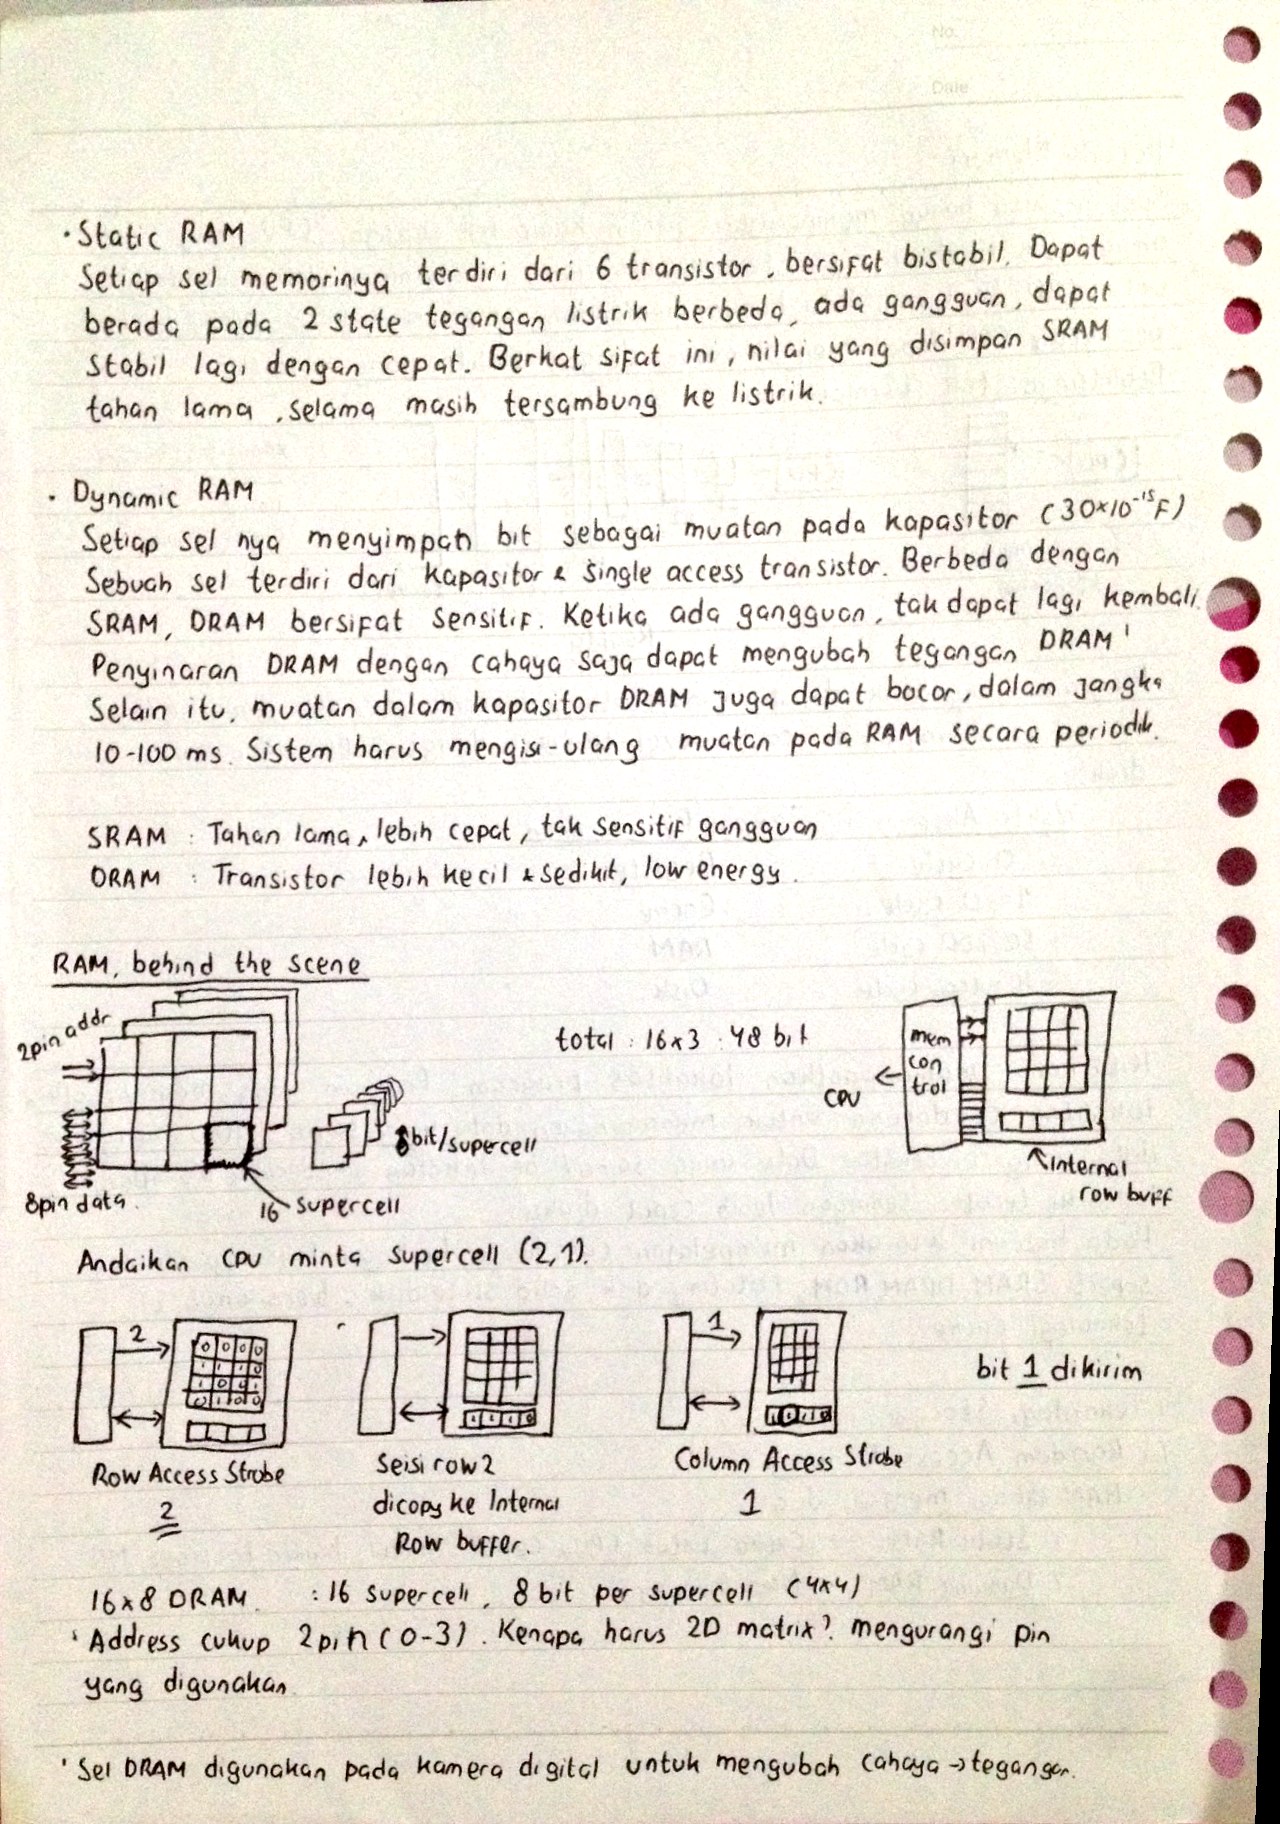 No.
Date
· Static RAM
Setiap sel memorinya terdiri dari 6 transistor, bersifat bistabil. Dapat
berada pada 2 state tegangan listrik berbeda, ada gangguan, dapat
stabil lagi dengan cepat. Berkat sifat ini, nilai yang disimpan SRAM
tahan lama, selama masih tersambung ke listrik.
· Dynamic RAM
Setiap sel nya menyimpan bit sebagai muatan pada kapasitor (30×10⁻¹⁵F)
Sebuah sel terdiri dari kapasitor & single access transistor. Berbeda dengan
SRAM, DRAM bersifat sensitif. Ketika ada gangguan, tak dapat lagi kembali.
Penyinaran DRAM dengan cahaya saja dapat mengubah tegangan DRAM '
Selain itu, muatan dalam kapasitor DRAM juga dapat bocor, dalam jangka
10-100 ms. Sistem harus mengisi-ulang muatan pada RAM secara periodik.
SRAM : Tahan lama, lebih cepat, tak sensitif gangguan
DRAM : Transistor lebih kecil & sedikit, low energy.
RAM, behind the scene
2pin addr
8pin data.
16 supercell
8bit/supercell
total : 16×3 : 48 bit
CPU
mem
con
trol
Internal
row buff
Andaikan CPU minta supercell (2,1).
2
Row Access Strobe
2
Seisi row 2
dicopy ke Internal
Row buffer.
1
Column Access Strobe
1
bit 1 dikirim
16×8 DRAM. : 16 supercell, 8 bit per supercell (4×4)
' Address cukup 2pin (0-3). Kenapa harus 2D matrix? mengurangi pin
yang digunakan
' Sel DRAM digunakan pada kamera digital untuk mengubah cahaya → tegangan.